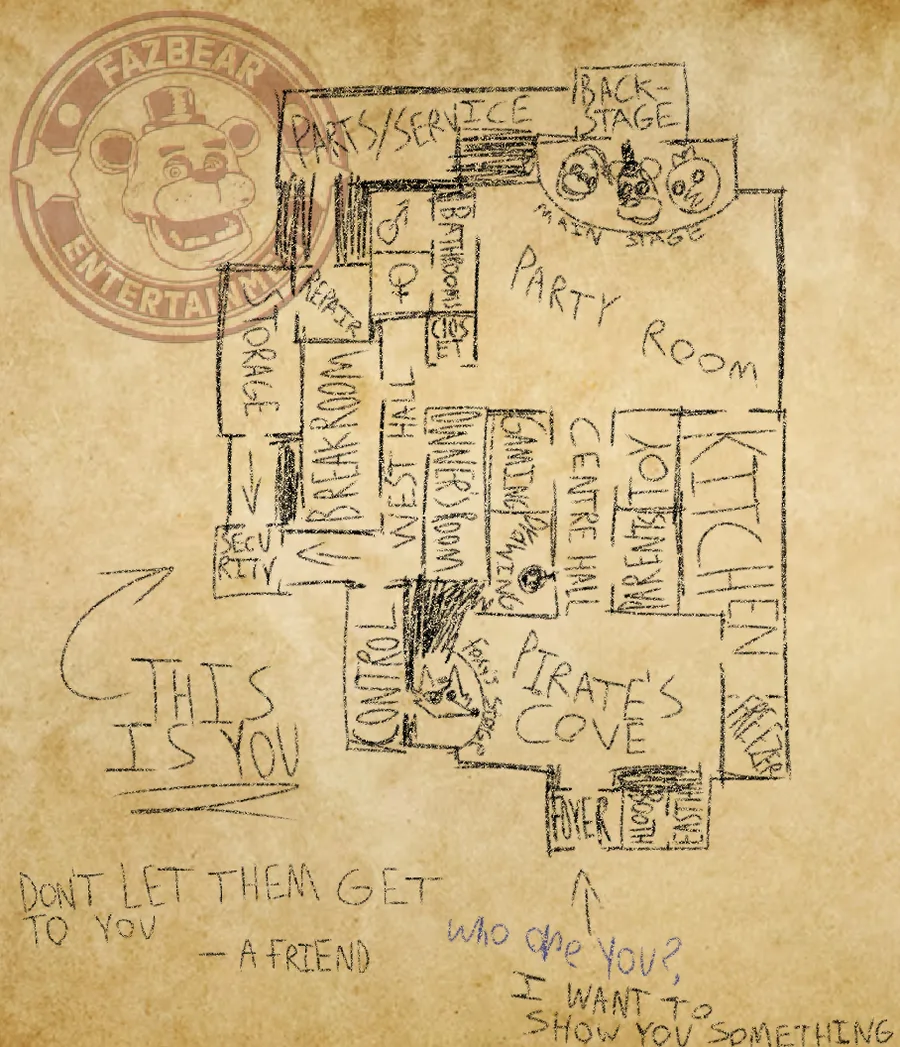 FAZBEAR
ENTERTAINME
PARTS/SERVICE
BACK-
STAGE
MAIN STAGE
BATHROOMS
CLOS
ET
PARTY
ROOM
STORAGE
REPAIR
BREAKROOM
WEST HALL
DINNER'S ROOM
GAMING
DRAWING
CENTRE HALL
TOY
PARENTS
KITCHEN
SECU
RITY
CONTROL
FOXY'S STAGE
PIRATE'S
COVE
FREEZER
FOYER
BOOTH
THIS
IS YOU
DON'T LET THEM GET
TO YOU
— A FRIEND
Who are YOU?
I WANT TO
SHOW YOU SOMETHING